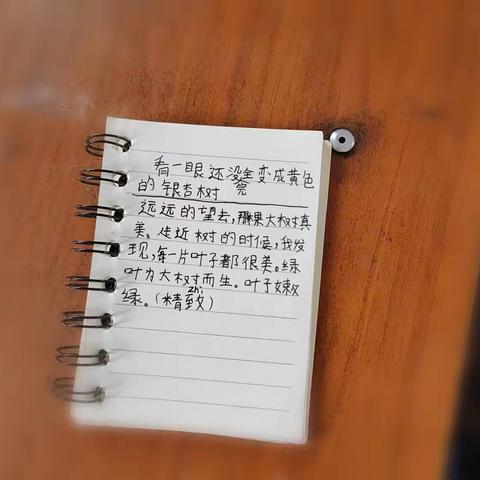 看一眼还没完全变成黄色
的银杏树
远远的望去，那棵大树真
美。走近树的时候，我发
现，每一片叶子都很美。绿
叶为大树而生。叶子嫩又
zhì
绿。(精致)